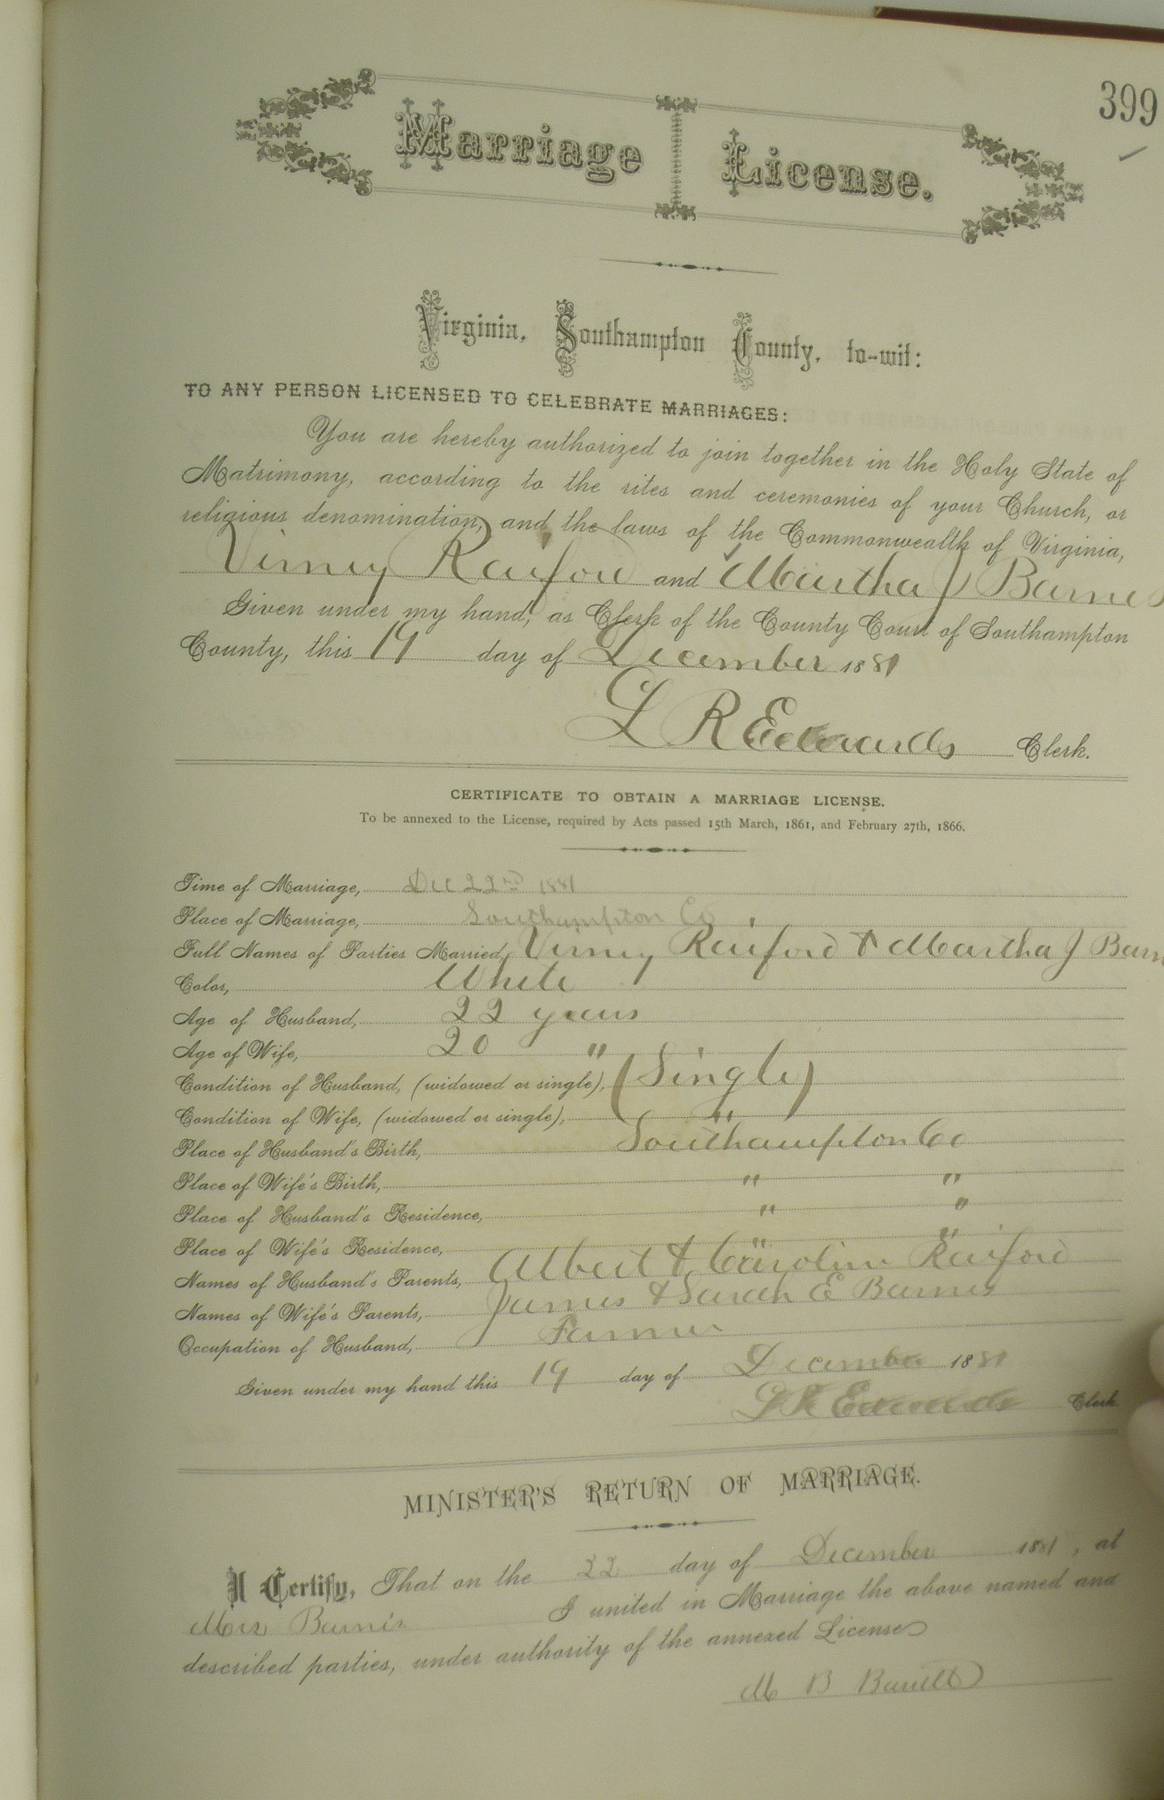 399
Marriage License.
Virginia, Southampton County, to-wit:
TO ANY PERSON LICENSED TO CELEBRATE MARRIAGES:
You are hereby authorized to join together in the Holy State of
Matrimony, according to the rites and ceremonies of your Church, or
religious denomination, and the laws of the Commonwealth of Virginia,
Virney Raiford and Martha J Barnes
Given under my hand, as Clerk of the County Court of Southampton
County, this 19 day of December 1881
L R Edwards Clerk.
CERTIFICATE TO OBTAIN A MARRIAGE LICENSE.
To be annexed to the License, required by Acts passed 15th March, 1861, and February 27th, 1866.
Time of Marriage, Dec 22nd 1881
Place of Marriage, Southampton Co
Full Names of Parties Married, Virney Raiford & Martha J Barn
Color, White
Age of Husband, 22 years
Age of Wife, 20 "
Condition of Husband, (widowed or single), (Single)
Condition of Wife, (widowed or single), "
Place of Husband's Birth, Southampton Co
Place of Wife's Birth, " "
Place of Husband's Residence, " "
Place of Wife's Residence, " "
Names of Husband's Parents, Albert & Caroline Raiford
Names of Wife's Parents, James & Sarah E Barnes
Occupation of Husband, Farmer
Given under my hand this 19 day of December 1881
L R Edwards Clerk
MINISTER'S RETURN OF MARRIAGE.
I Certify, That on the 22 day of December 1881, at
Mrs Barnes I united in Marriage the above named and
described parties, under authority of the annexed License
M B Barrett